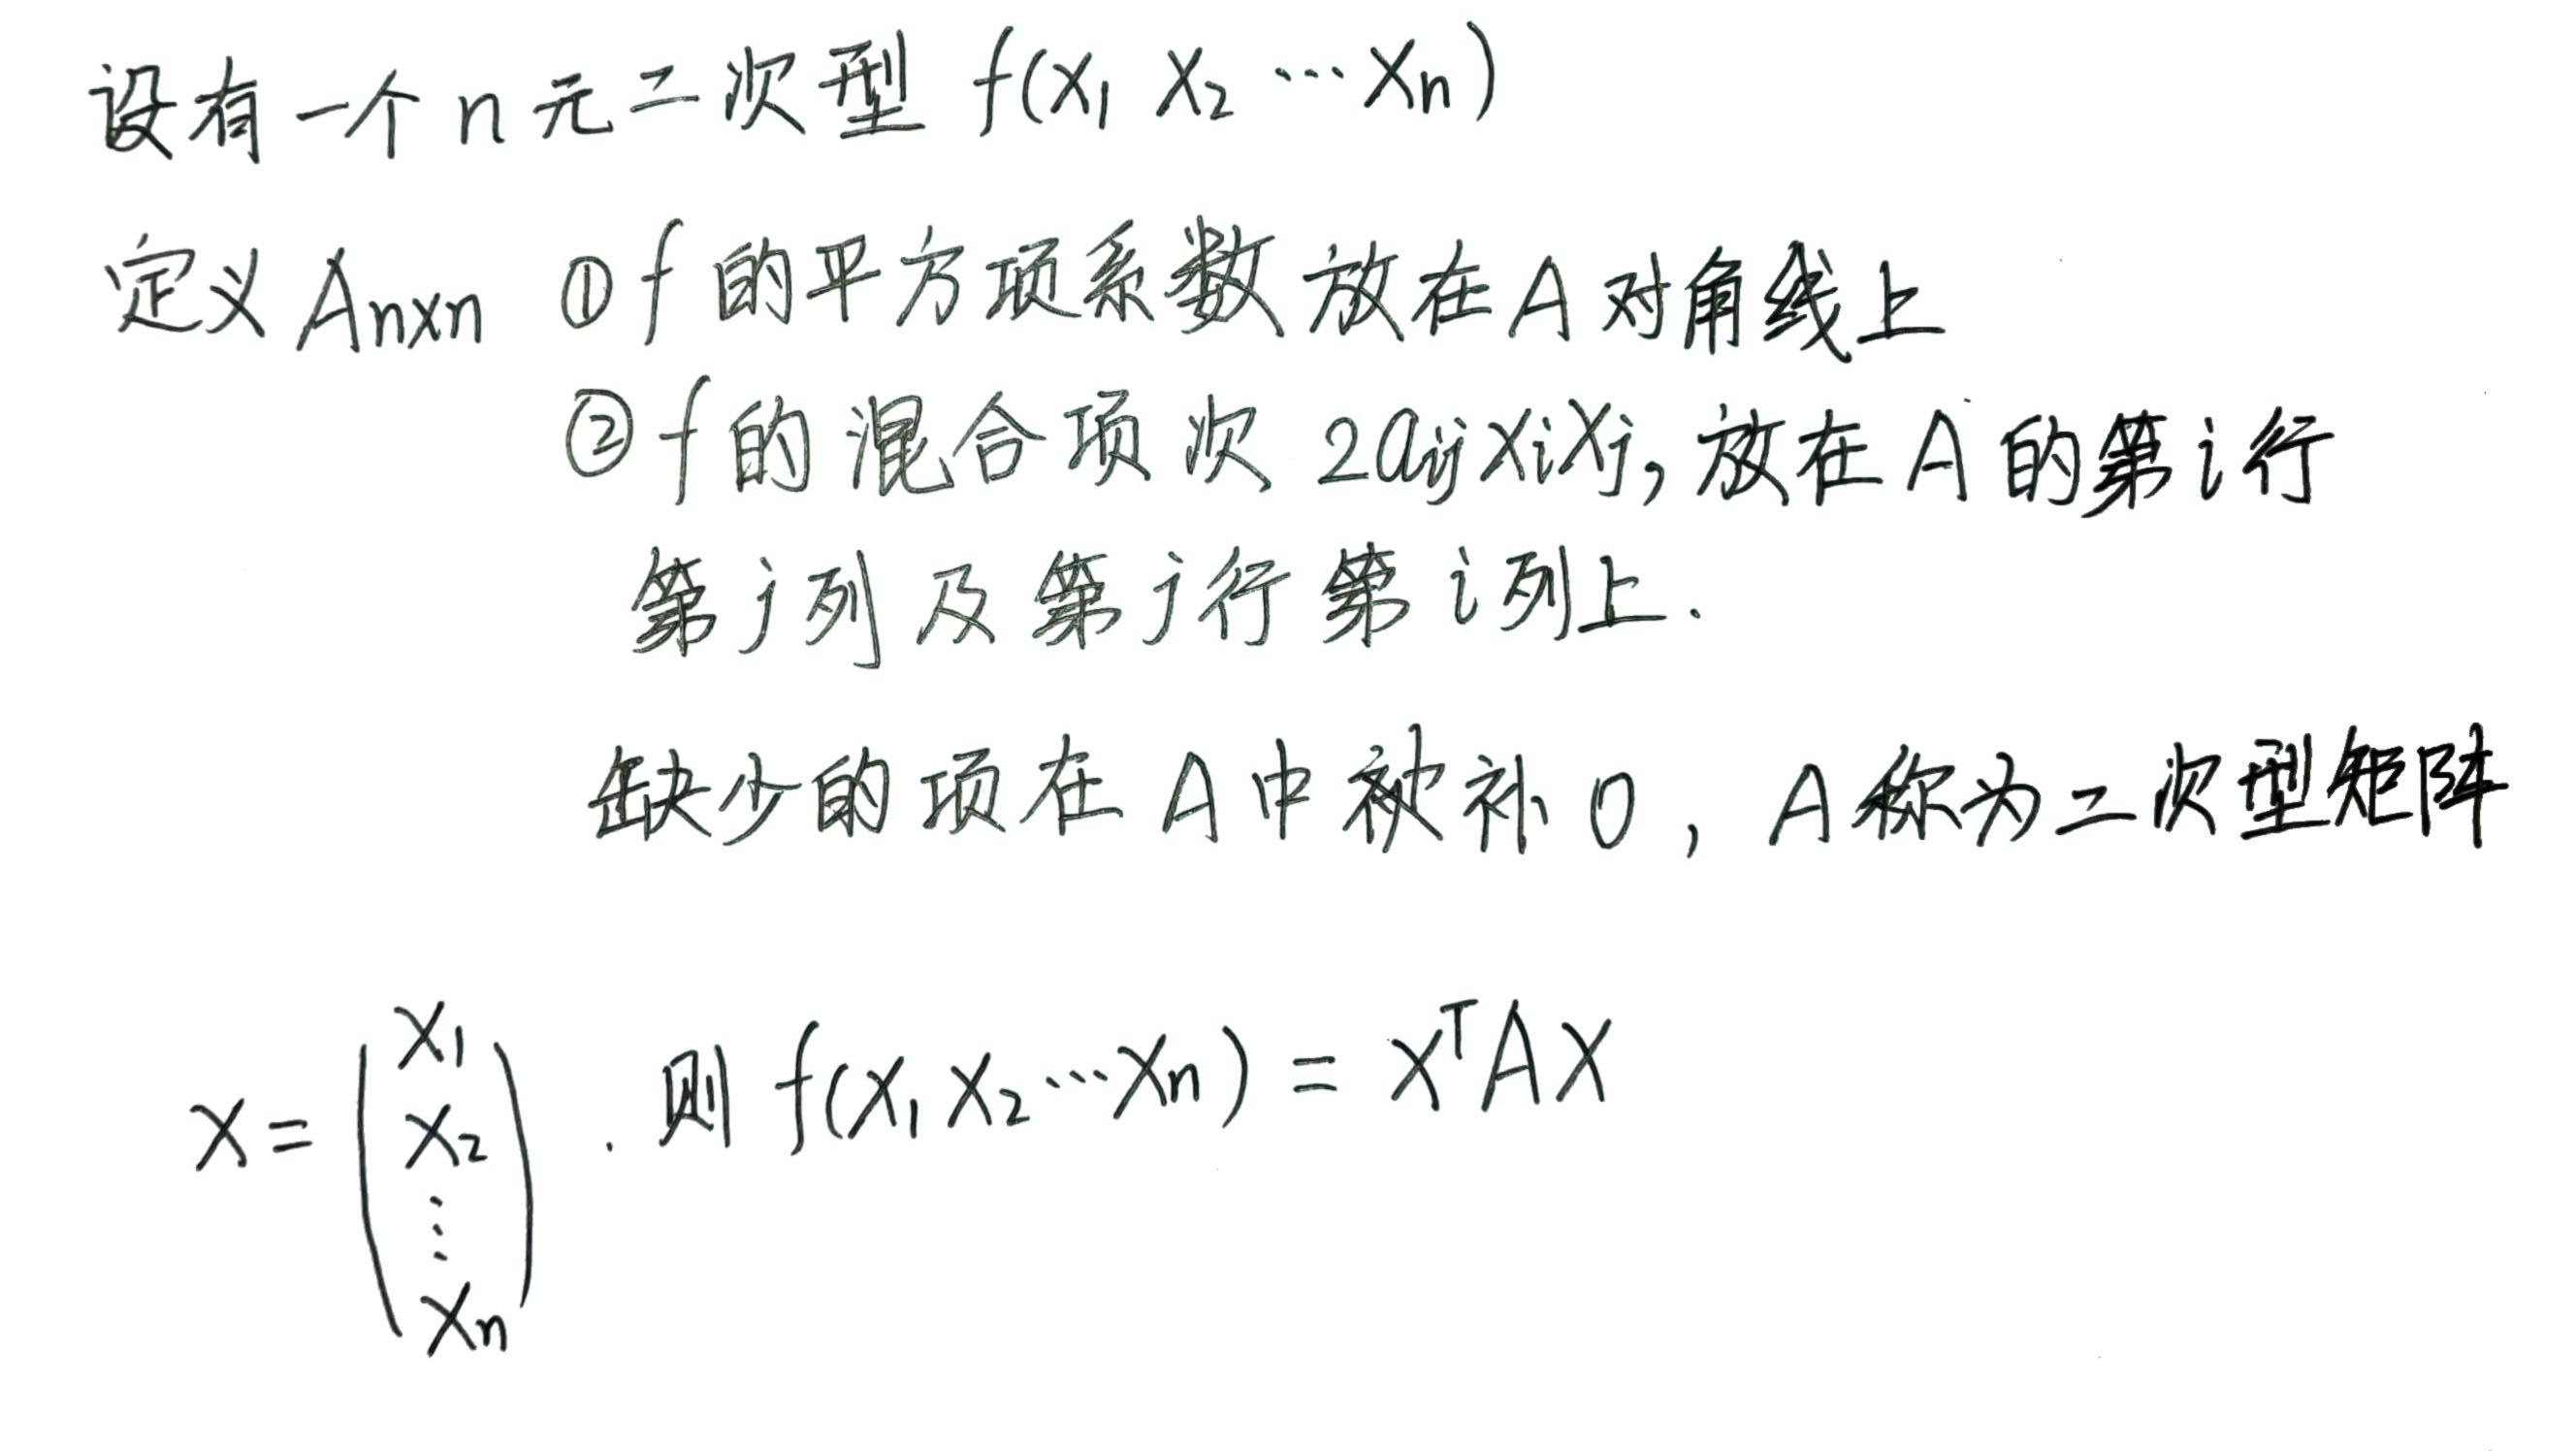 设有一个 n 元二次型 f(x₁ x₂ ⋯ xₙ)
定义 Aₙₓₙ ① f 的平方项系数放在 A 对角线上
② f 的混合项次 2aᵢⱼxᵢxⱼ, 放在 A 的第 i 行
第 j 列及第 j 行第 i 列上.
缺少的项在 A 中被补 0, A 称为二次型矩阵
x = (x₁ x₂ ⋮ xₙ) . 则 f(x₁ x₂ ⋯ xₙ) = xᵀAx